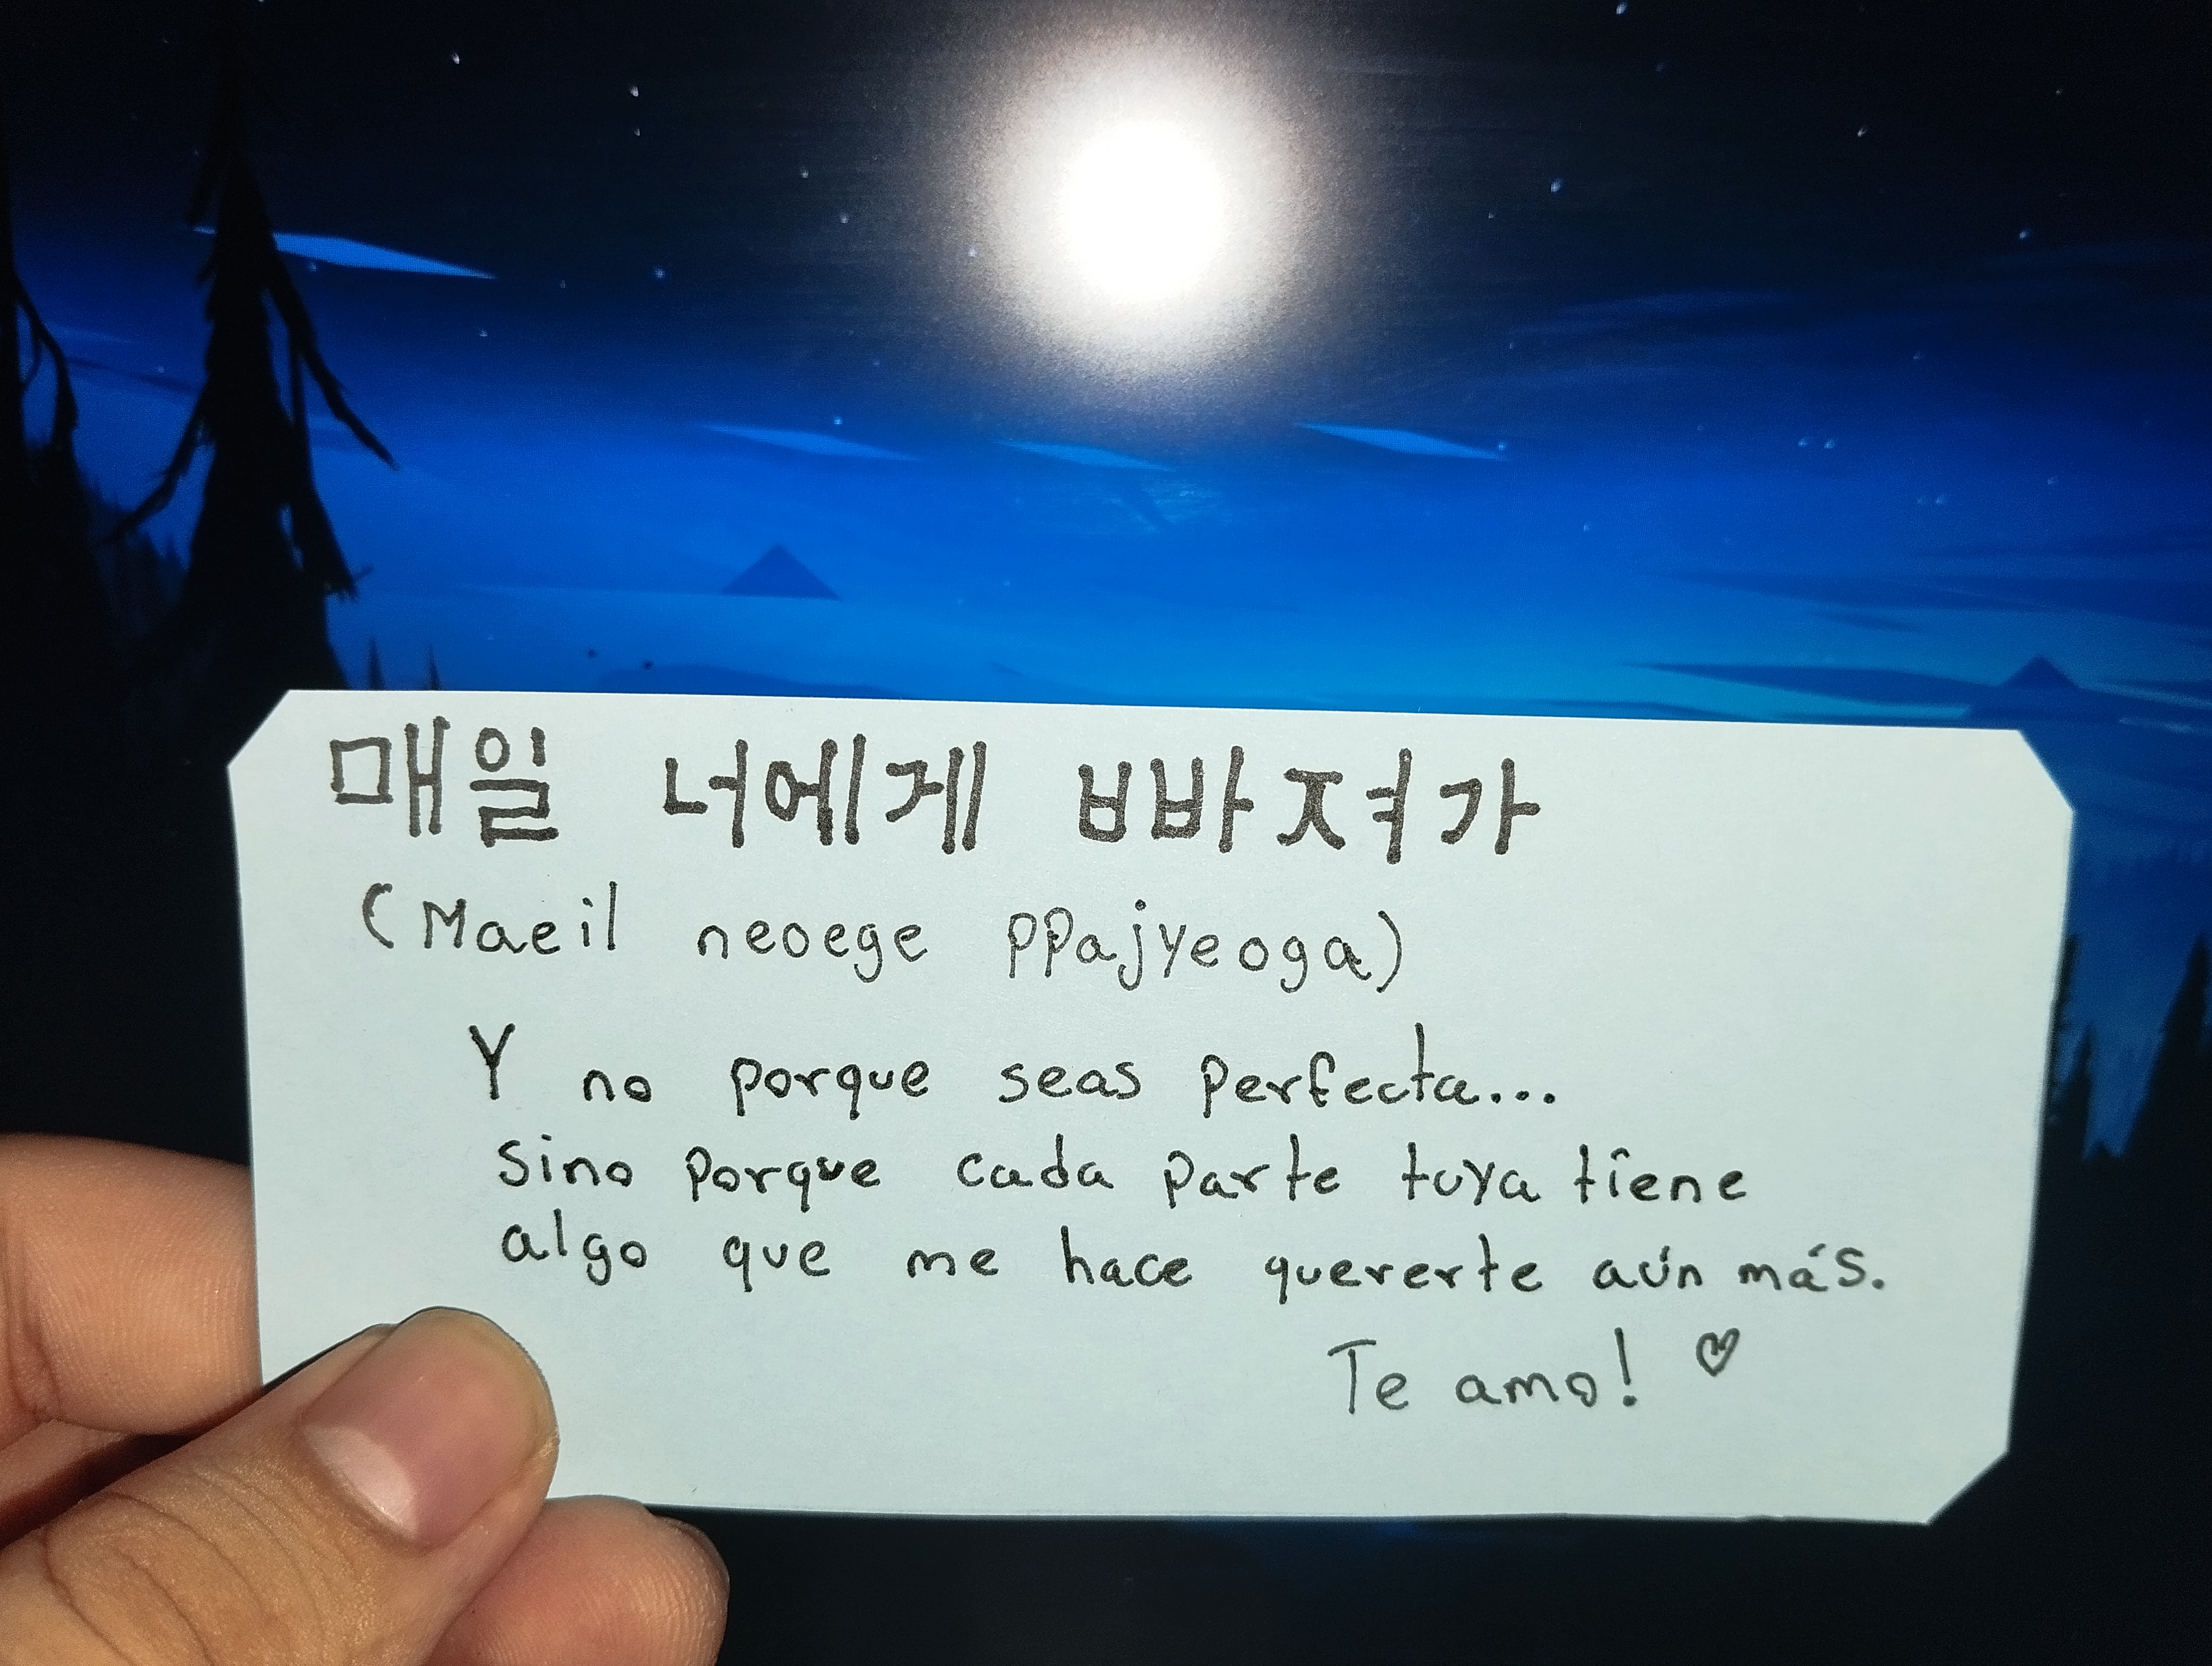 매일 너에게 빠져가
(Maeil neoege ppajyeoga)
Y no porque seas perfecta...
sino porque cada parte tuya tiene
algo que me hace quererte aún más.
Te amo! ♡